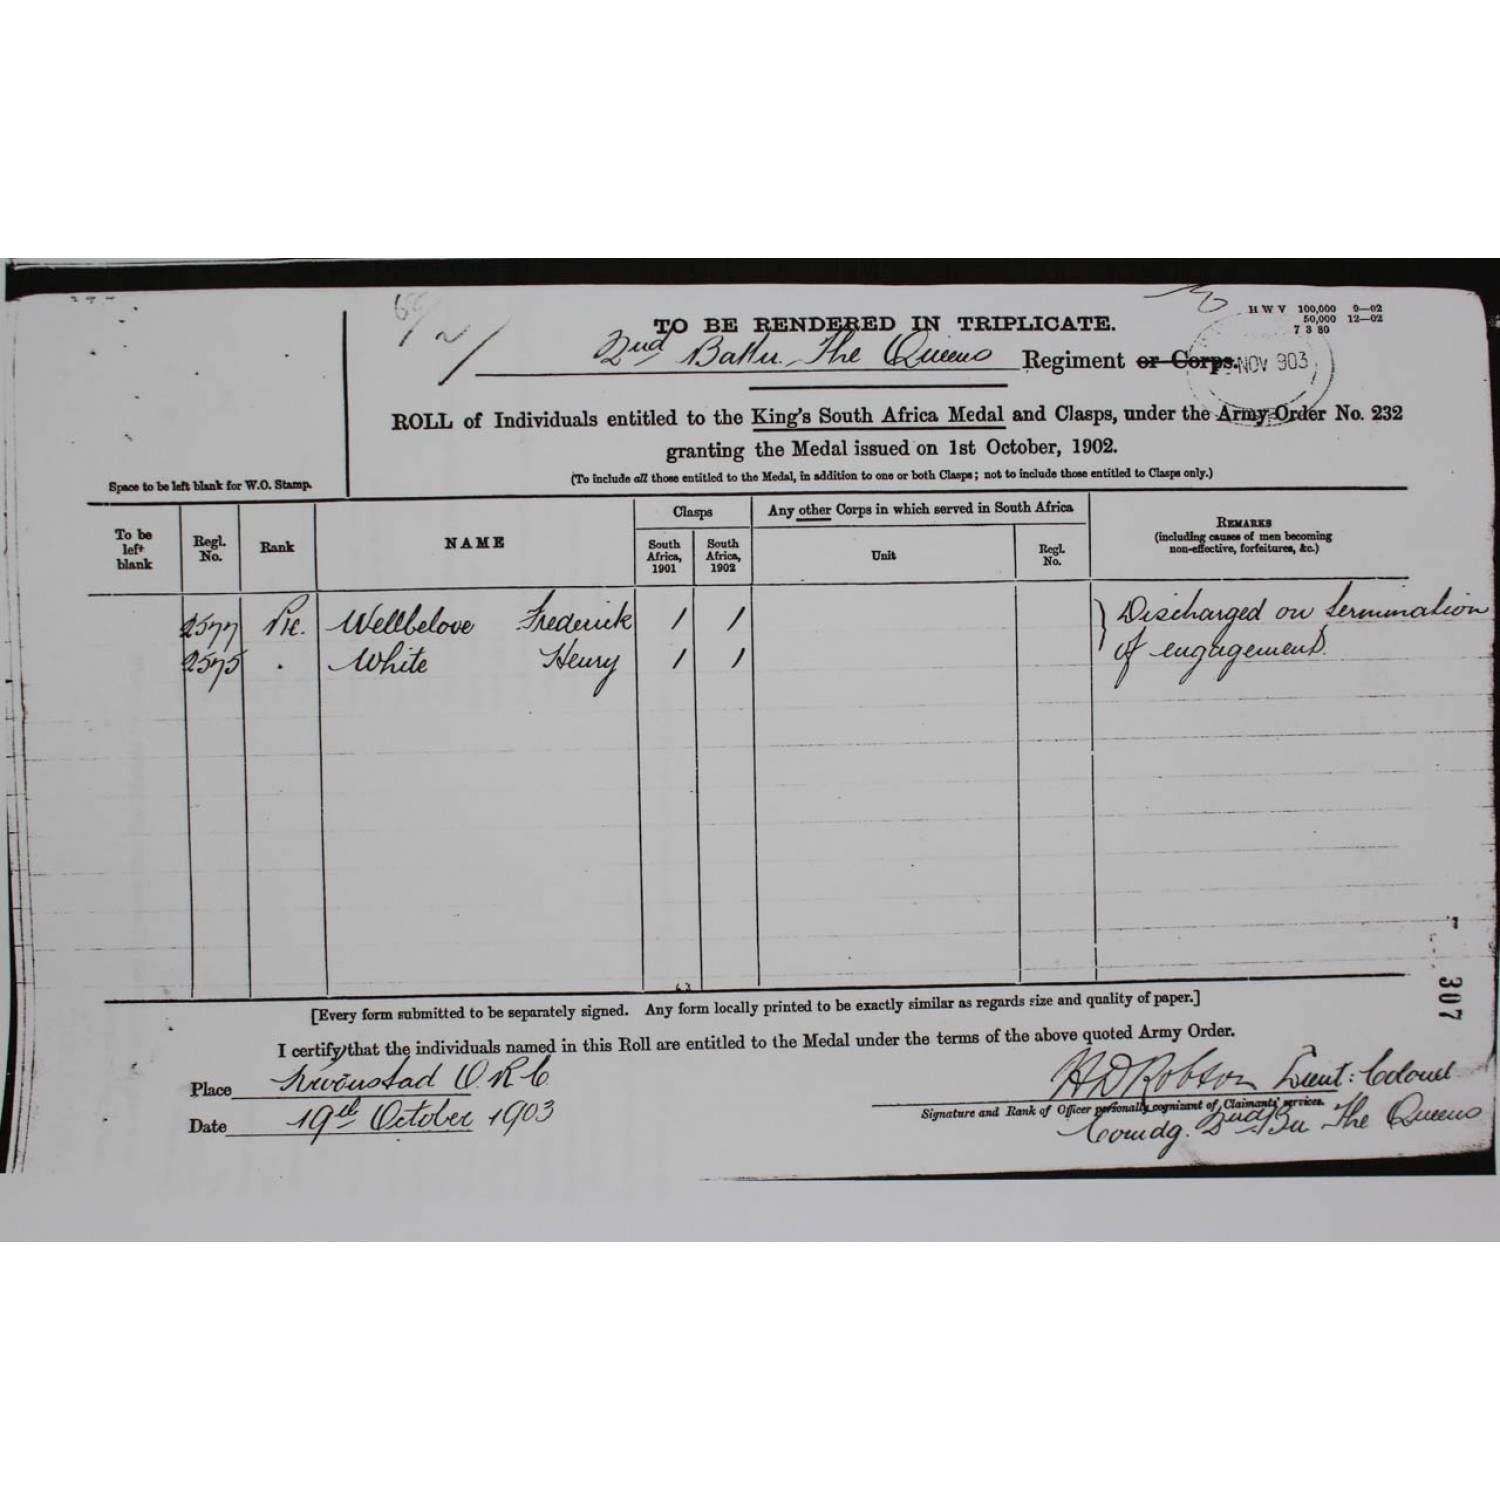 H W V 100,000 9—02
50,000 12—02
7 3 80
TO BE RENDERED IN TRIPLICATE.
2nd Battn. The Queens Regiment or Corps.
NOV 903
ROLL of Individuals entitled to the King's South Africa Medal and Clasps, under the Army Order No. 232
granting the Medal issued on 1st October, 1902.
(To include all those entitled to the Medal, in addition to one or both Clasps; not to include those entitled to Clasps only.)
Space to be left blank for W.O. Stamp.
To be left blank
Regl. No.
Rank
NAME
Clasps
South Africa, 1901
South Africa, 1902
Any other Corps in which served in South Africa
Unit
Regl. No.
REMARKS
(including causes of men becoming
non-effective, forfeitures, &c.)
2577 Pte. Wellbelove Frederick / / Discharged on termination
2575 . White Henry / / of engagement.
[Every form submitted to be separately signed. Any form locally printed to be exactly similar as regards size and quality of paper.]
307
I certify that the individuals named in this Roll are entitled to the Medal under the terms of the above quoted Army Order.
Place O.R.C
H D Robson Lieut: Colonel
Signature and Rank of Officer personally cognizant of Claimants' services.
Date 19th October 1903
Comdg. 2nd Bn The Queens